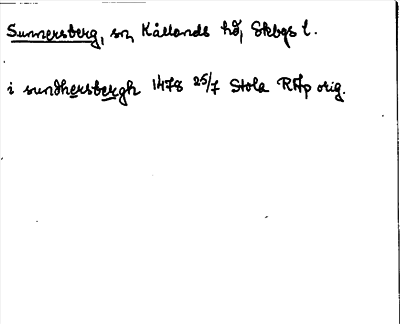 Sunnersberg, sn, Kållands hd, Skbgs l.
i sundhersbergh 1478 25/7 Stola RAp orig.